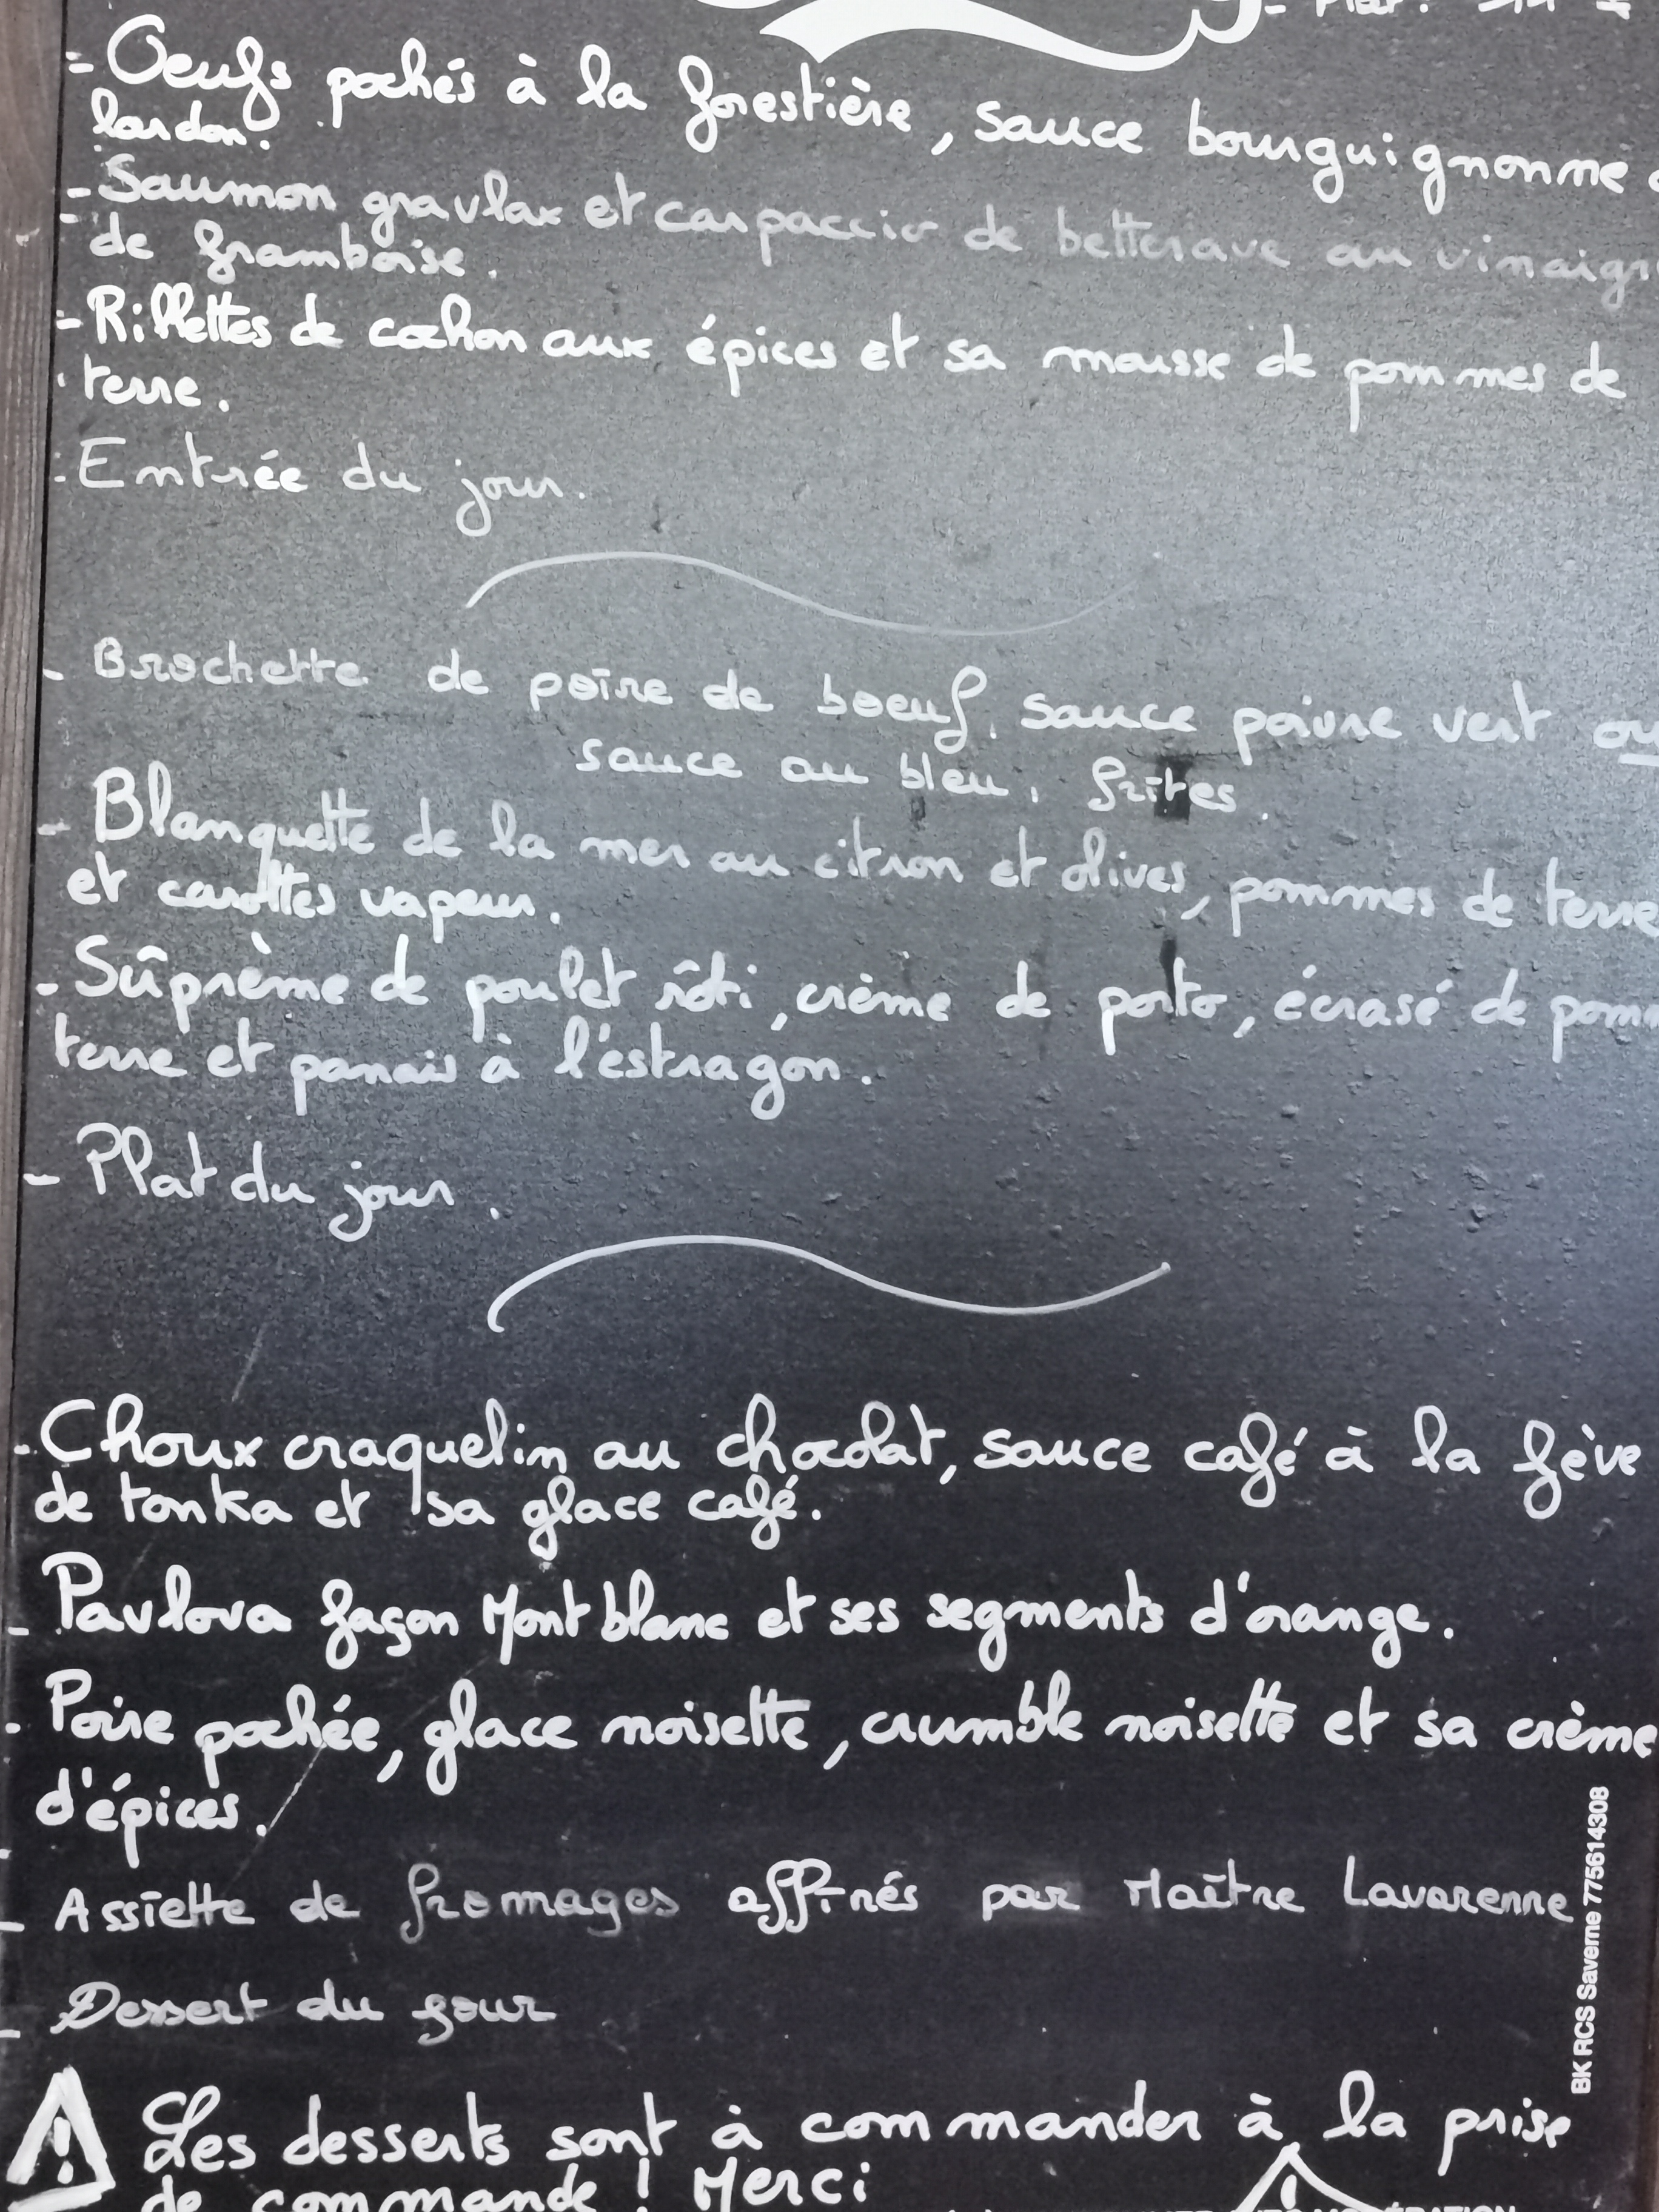 - Plat :
- Oeufs pochés à la forestière, sauce bourguignonne
lardon.
- Saumon gravlax et carpaccio de betterave au vinaigr
de framboise.
- Rillettes de cochon aux épices et sa mousse de pommes de
terre.
- Entrée du jour.
- Brochette de poire de boeuf, sauce poivre vert ou
sauce au bleu, frites.
- Blanquette de la mer au citron et olives, pommes de terre
et carottes vapeur.
- Sûprème de poulet rôti, crème de porto, écrasé de pomm
terre et panais à l'estragon.
- Plat du jour.
- Choux craquelin au chocolat, sauce café à la fève
de tonka et sa glace café.
- Pavlova façon Mont blanc et ses segments d'orange.
- Poire pochée, glace noisette, crumble noisette et sa crème
d'épices.
- Assiette de fromages affinés par Maître Lavarenne
- Dessert du jour
BK RCS Saverne 775614308
Les desserts sont à commander à la prise
de commande ! Merci